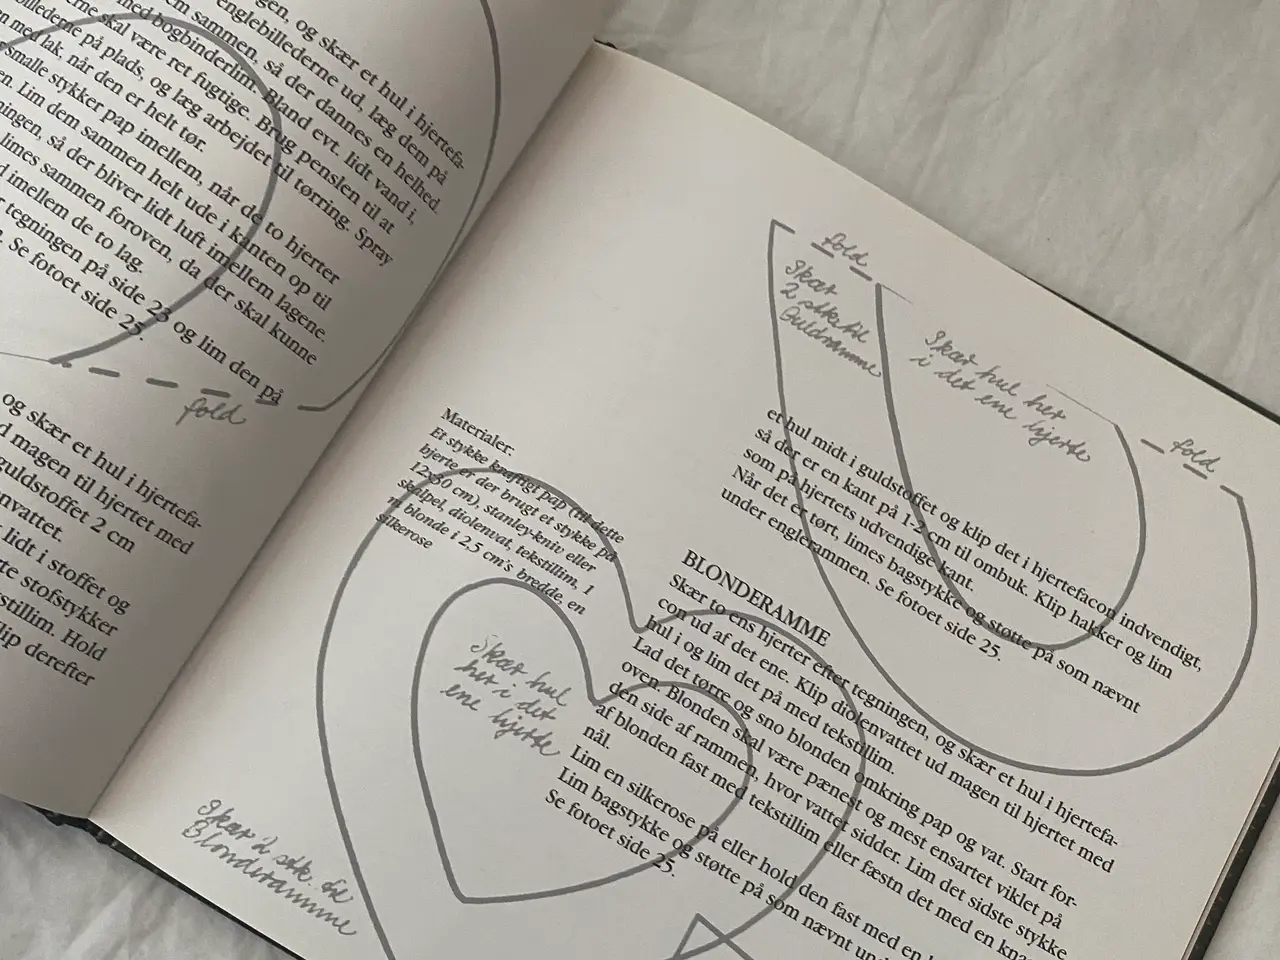 gen, og skær et hul i hjertefa-
englebillederne ud, læg dem på
m sammen, så der dannes en helhed.
med bogbinderlim. Bland evt. lidt vand i,
erne skal være ret fugtige. Brug penslen til at
billederne på plads, og læg arbejdet til tørring. Spray
med lak, når den er helt tør.
smalle stykker pap imellem, når de to hjerter
en. Lim dem sammen helt ude i kanten op til
ningen, så der bliver lidt luft imellem lagene.
limes sammen foroven, da der skal kunne
d imellem de to lag.
r tegningen på side 23 og lim den på
. Se fotoet side 25.
fold
og skær et hul i hjertefa-
d magen til hjertet med
guldstoffet 2 cm
nvattet.
lidt i stoffet og
rte stofstykker
stillim. Hold
lip derefter
Materialer:
Et stykke kraftigt pap (til dette
hjerte er der brugt et stykke på
12x30 cm), stanley-kniv eller
skalpel, diolenvat, tekstillim, 1
m blonde i 2,5 cm's bredde, en
silkerose
Skær hul
her i det
ene hjerte
Skær 2 stk. til
Blonderamme
fold
Skær
2 stk. til
Guldramme
Skær hul her
i det ene hjerte
fold
et hul midt i guldstoffet og klip det i hjertefacon indvendigt,
så der er en kant på 1-2 cm til ombuk. Klip hakker og lim
som på hjertets udvendige kant.
Når det er tørt, limes bagstykke og støtte på som nævnt
under englerammen. Se fotoet side 25.
BLONDERAMME
Skær to ens hjerter efter tegningen, og skær et hul i hjertefa-
con ud af det ene. Klip diolenvattet ud magen til hjertet med
hul i og lim det på med tekstillim.
Lad det tørre og sno blonden omkring pap og vat. Start for-
oven. Blonden skal være pænest og mest ensartet viklet på
den side af rammen, hvor vattet sidder. Lim det sidste stykke
af blonden fast med tekstillim eller fæstn det med en knappe-
nål.
Lim en silkerose på eller hold den fast med en
Lim bagstykke og støtte på som nævnt
Se fotoet side 25.